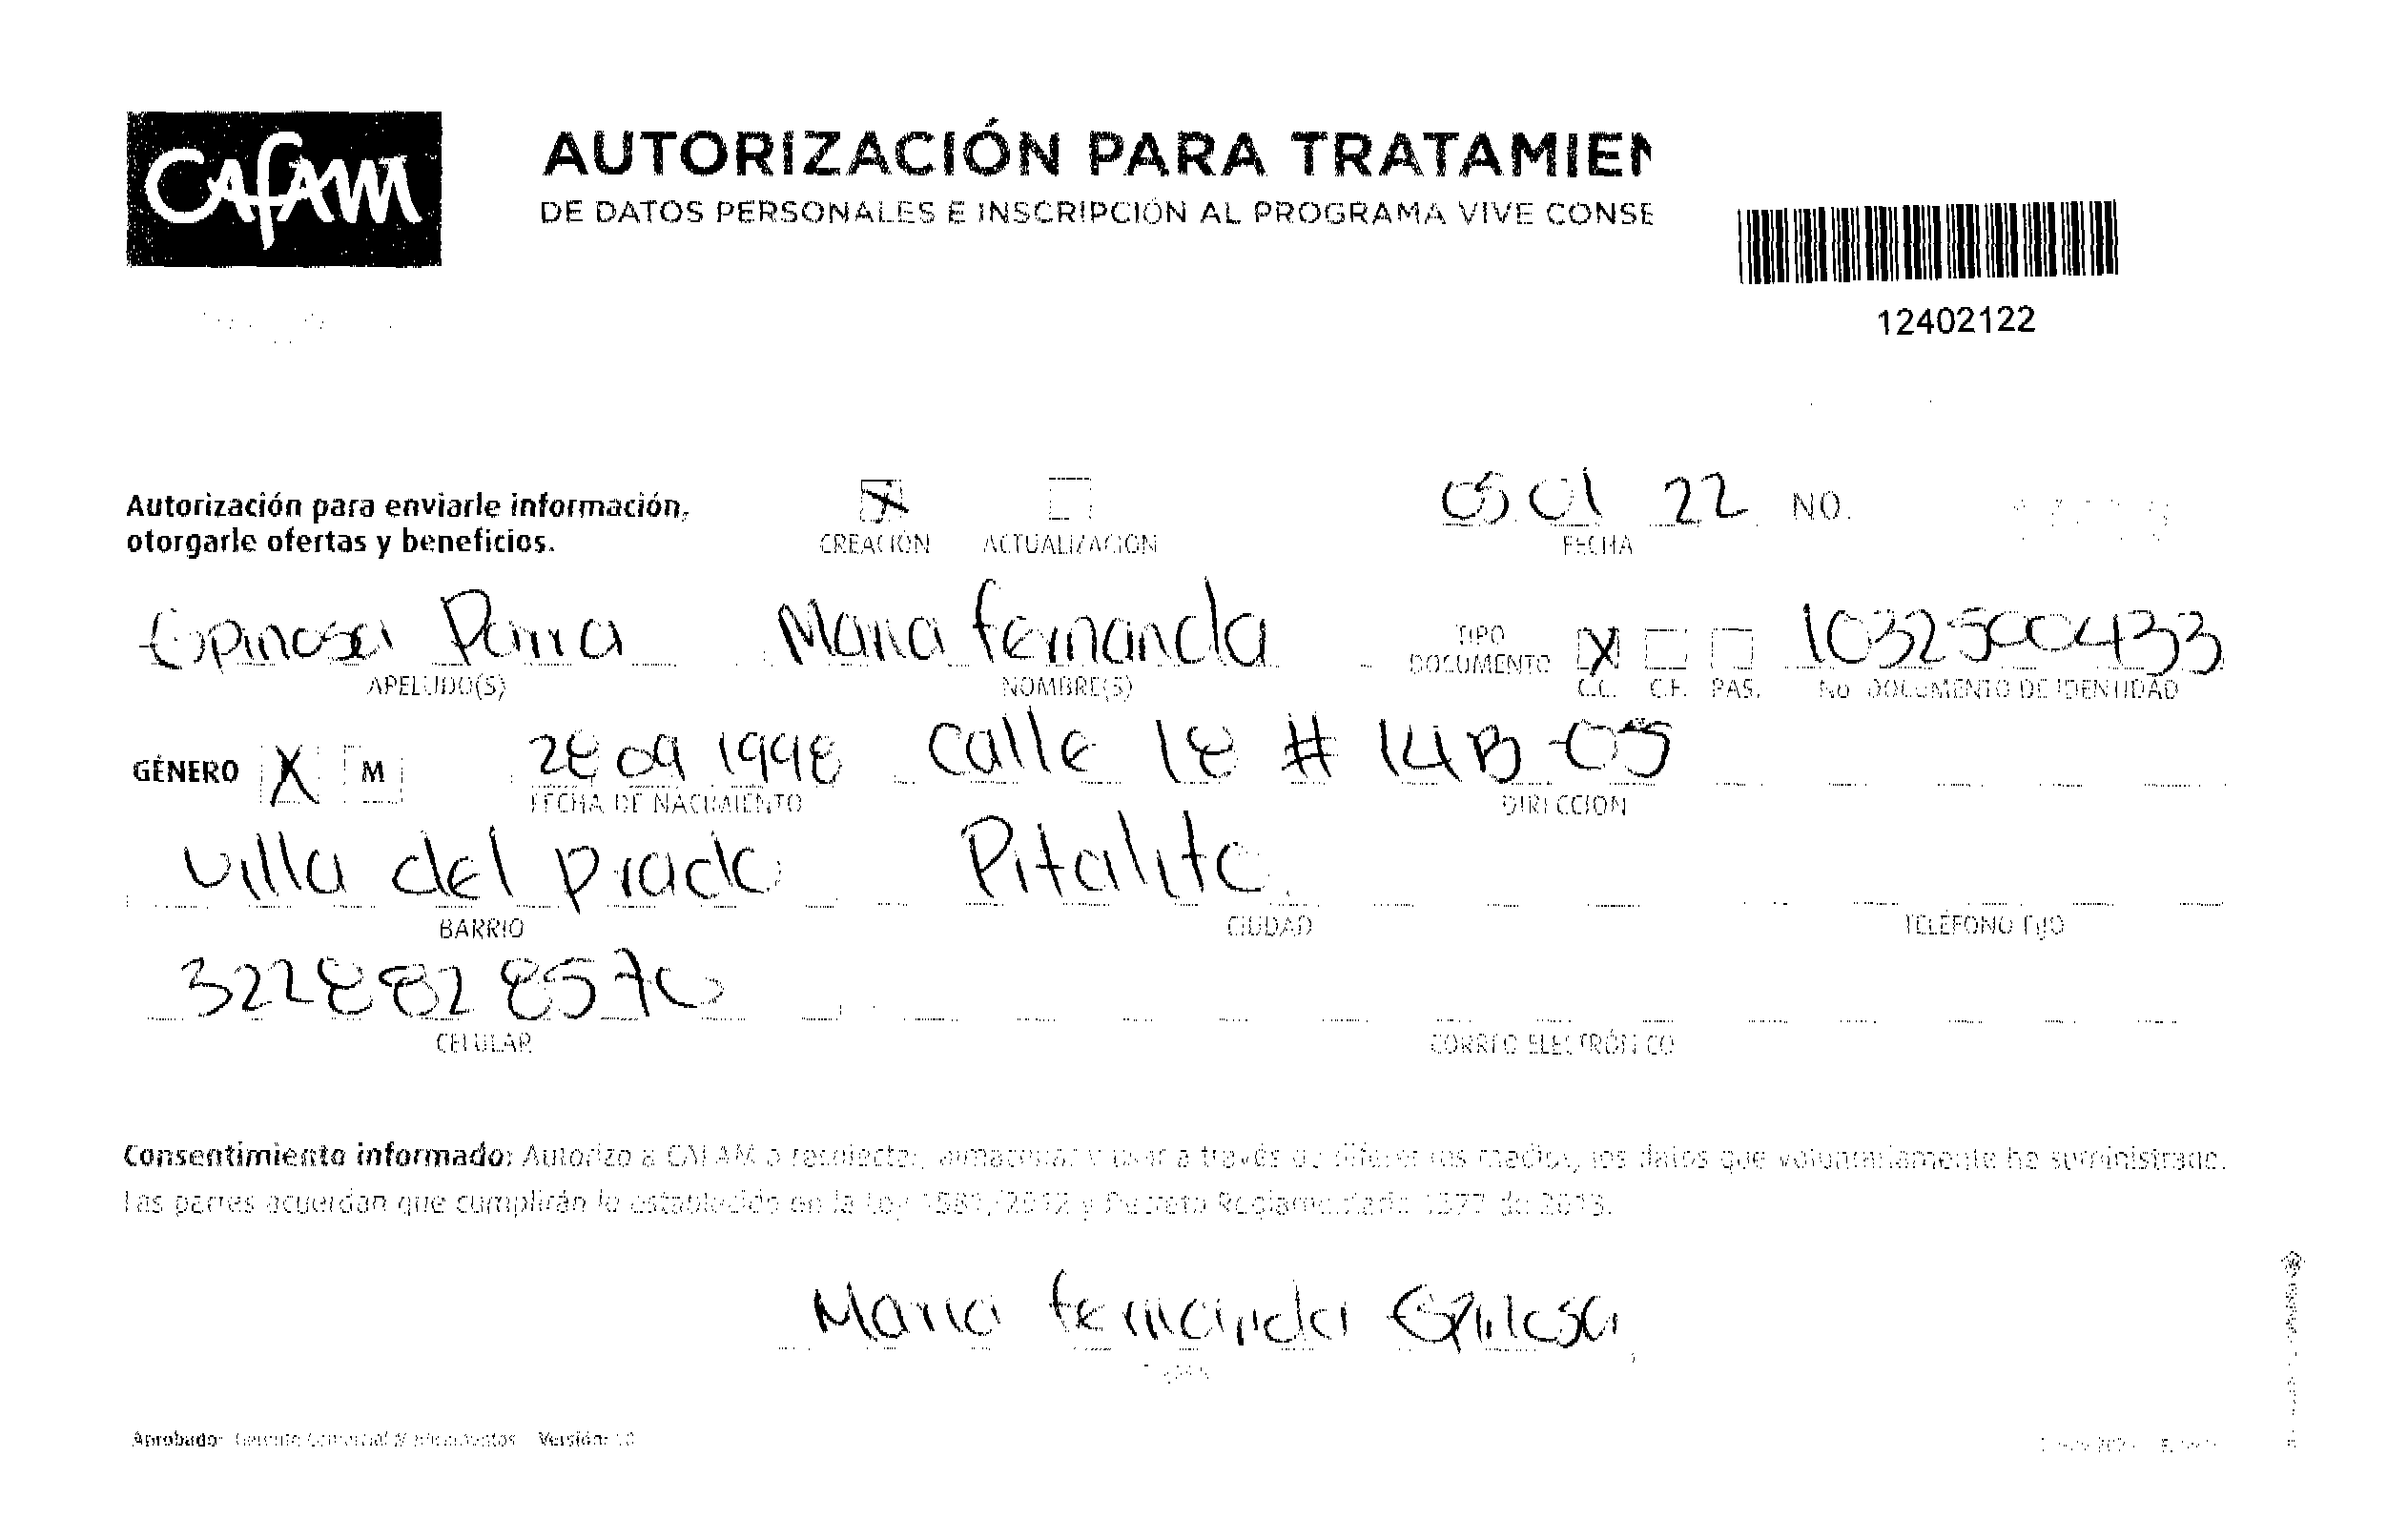 CAFAM
AUTORIZACIÓN PARA TRATAMIEN
DE DATOS PERSONALES E INSCRIPCIÓN AL PROGRAMA VIVE CONSE
12402122
Autorización para enviarle información, otorgarle ofertas y beneficios.
X CREACIÓN ACTUALIZACIÓN
05 01 22 FECHA NO.
Espinosa Parra APELLIDO(S)
Maria fernanda NOMBRE(S)
TIPO DOCUMENTO X C.C. C.E. PAS.
1032500433 No. DOCUMENTO DE IDENTIDAD
GÉNERO X M
28 09 1998 FECHA DE NACIMIENTO
Calle 18 # 14B-05 DIRECCIÓN
Villa del prado BARRIO
Pitalito CIUDAD
TELÉFONO FIJO
322882 8570 CELULAR
CORREO ELECTRÓNICO
Consentimiento informado: Autorizo a CAFAM a recolectar, almacenar y usar a través de diferentes medios, los datos que voluntariamente he suministrado.
Las partes acuerdan que cumplirán lo establecido en la Ley 1581/2012 y Decreto Reglamentario 1377 de 2013.
Maria fernanda Espinosa
Aprobado: Gerente Comercial Versión: